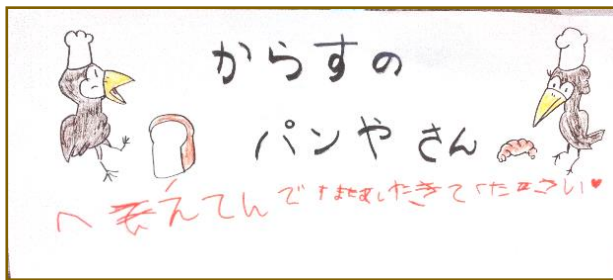 からすの
パンやさん
へ えてんで きてください♥